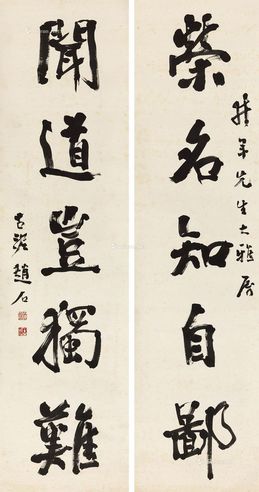 榮名知自鄙
先生大雅屬
聞道豈獨難
古泥趙石